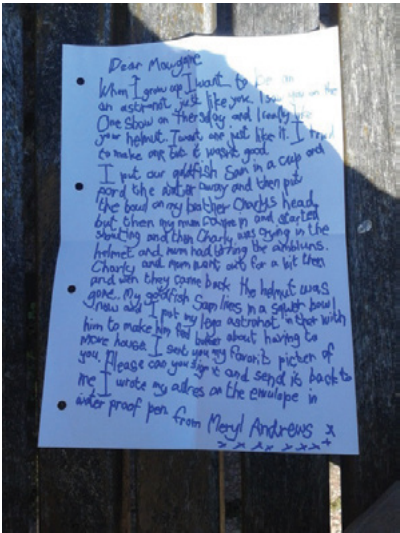 Dear Mowgaie
When I grow up I want to be an
an astranot just like you. I saw you on the
One Show on Thersday and I really like
your helmut. I want one just like it. I tried
to make one but it wasnt good.
I put our goldfish Sam in a cup and
pord the water away and then put
the bowl on my brother Charlys head
but then my mum came in and started
shouting and then Charly was crying in the
helmet and mum had to ring the ambluns.
Charly and mum went out for a bit then
and wen they came back the helmut was
gone. My goldfish Sam lives in a bowl
now and I put my lego astranot in ther with
him to make him feel better about having to
move house. I sent you my favorit picter of
you. Please can you sign it and send it back to
me I wrote my adres on the envulope in
water proof pen from Meryl Andrews x
x x x x x x x x